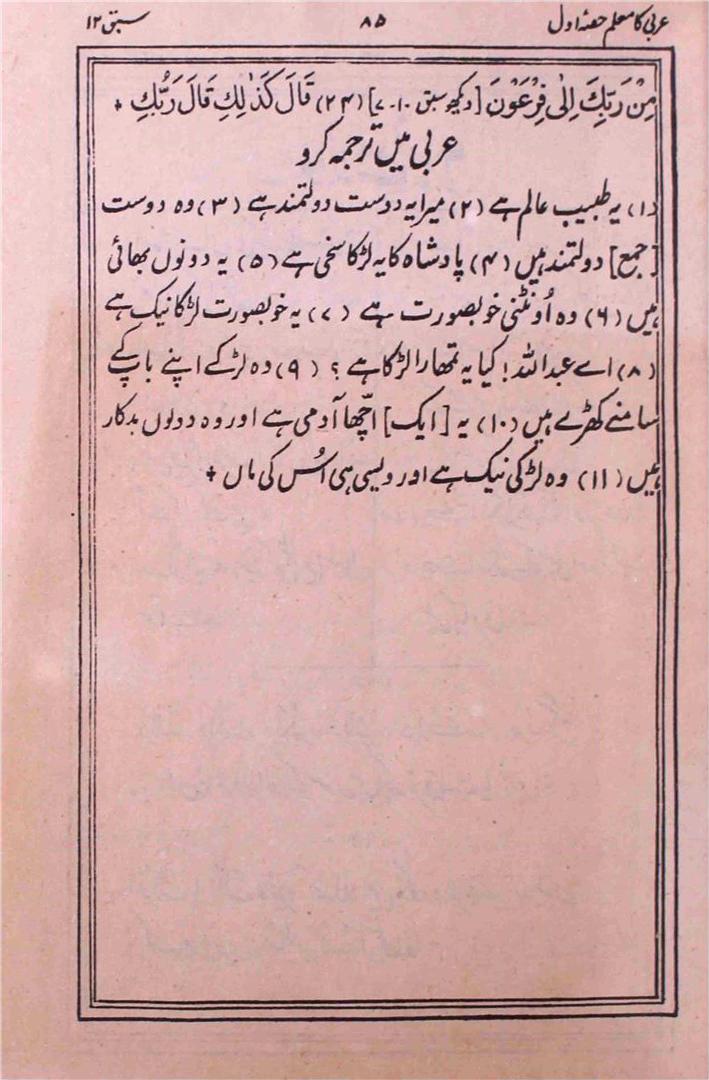 عربی کا معلم حصۂ اول ۸۵ سبق ۱۲
مِنْ رَبِّكَ اِلٰى فِرْعَوْنَ [دیکھو سبق ۱۰-۷] (۲۴) قَالَ كَذٰلِكِ قَالَ رَبُّكِ +
عربی میں ترجمہ کرو
(۱) یہ طبیب عالم ہے (۲) میرا یہ دوست دولتمند ہے (۳) وہ دوست
[جمع] دولتمند ہیں (۴) پادشاہ کا یہ لڑکا سخی ہے (۵) یہ دونوں بھائی
ہیں (۶) وہ اُونٹنی خوبصورت ہے (۷) یہ خوبصورت لڑکا نیک ہے
(۸) اے عبداللہ! کیا یہ تمھارا لڑکا ہے ؟ (۹) وہ لڑکے اپنے باپ کے
سامنے کھڑے ہیں (۱۰) یہ [ایک] اچھّا آدمی ہے اور وہ دونوں بدکار
ہیں (۱۱) وہ لڑکی نیک ہے اور ویسی ہی اُس کی ماں +